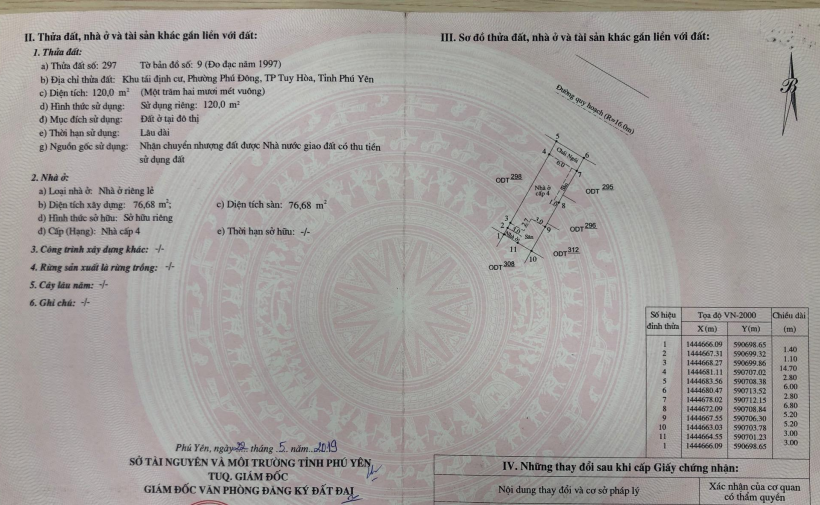 II. Thửa đất, nhà ở và tài sản khác gắn liền với đất:
1. Thửa đất:
a) Thửa đất số: 297 Tờ bản đồ số: 9 (Đo đạc năm 1997)
b) Địa chỉ thửa đất: Khu tái định cư, Phường Phú Đông, TP Tuy Hòa, Tỉnh Phú Yên
c) Diện tích: 120,0 m² (Một trăm hai mươi mét vuông)
d) Hình thức sử dụng: Sử dụng riêng: 120,0 m²
đ) Mục đích sử dụng: Đất ở tại đô thị
e) Thời hạn sử dụng: Lâu dài
g) Nguồn gốc sử dụng: Nhận chuyển nhượng đất được Nhà nước giao đất có thu tiền
sử dụng đất
2. Nhà ở:
a) Loại nhà ở: Nhà ở riêng lẻ
b) Diện tích xây dựng: 76,68 m²; c) Diện tích sàn: 76,68 m²
d) Hình thức sở hữu: Sở hữu riêng
đ) Cấp (Hạng): Nhà cấp 4 e) Thời hạn sở hữu: -/-
3. Công trình xây dựng khác: -/-
4. Rừng sản xuất là rừng trồng: -/-
5. Cây lâu năm: -/-
6. Ghi chú: -/-
Phú Yên, ngày 22 tháng 5 năm 2019
SỞ TÀI NGUYÊN VÀ MÔI TRƯỜNG TỈNH PHÚ YÊN
TUQ. GIÁM ĐỐC
GIÁM ĐỐC VĂN PHÒNG ĐĂNG KÝ ĐẤT ĐAI
III. Sơ đồ thửa đất, nhà ở và tài sản khác gắn liền với đất:
B
Đường quy hoạch (R=16.0m)
5
4
6
6.0
7
ODT 298
Nhà ở
cấp 4
ODT 295
1.0
8
3
2
1
3.0
3.0
9
Sân
ODT 296
11
10
ODT 312
ODT 308
Số hiệu đỉnh thửa Tọa độ VN-2000 Chiều dài
X(m) Y(m) (m)
1 1444666.09 590698.65
1.40
2 1444667.31 590699.32
1.10
3 1444668.27 590699.86
14.70
4 1444681.11 590707.02
2.80
5 1444683.56 590708.38
6.00
6 1444680.47 590713.52
2.80
7 1444678.02 590712.15
6.80
8 1444672.09 590708.84
5.20
9 1444667.55 590706.30
5.20
10 1444663.03 590703.78
3.00
11 1444664.55 590701.23
3.00
1 1444666.09 590698.65
IV. Những thay đổi sau khi cấp Giấy chứng nhận:
Nội dung thay đổi và cơ sở pháp lý
Xác nhận của cơ quan
có thẩm quyền